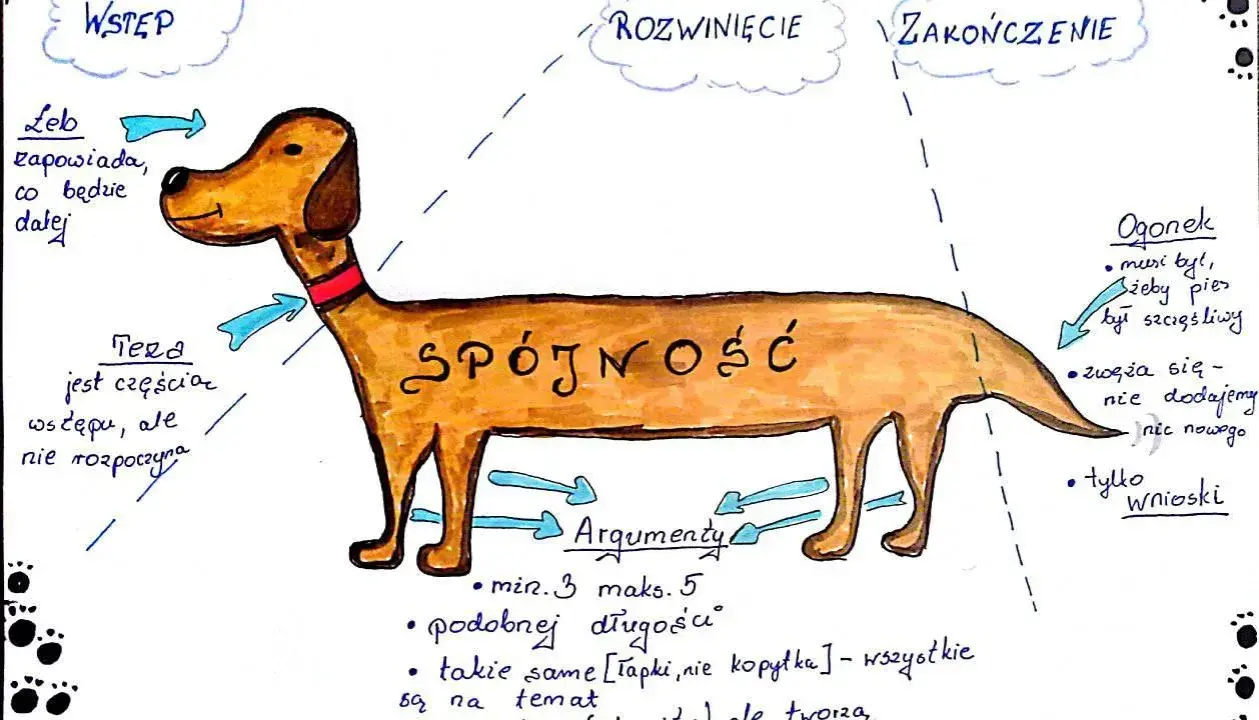 WSTĘP
ROZWINIĘCIE
ZAKOŃCZENIE
Łeb
zapowiada,
co będzie
dalej
Teza
jest częścią
wstępu, ale
nie rozpoczyna
SPÓJNOŚĆ
Ogonek
• musi być,
żeby pies
był szczęśliwy
• zwęża się -
nie dodajemy
nic nowego
• tylko
wnioski
Argumenty
• min. 3 maks. 5
• podobnej długości
• takie same [łapki, nie kopytka] - wszystkie
są na temat
ale tworzą